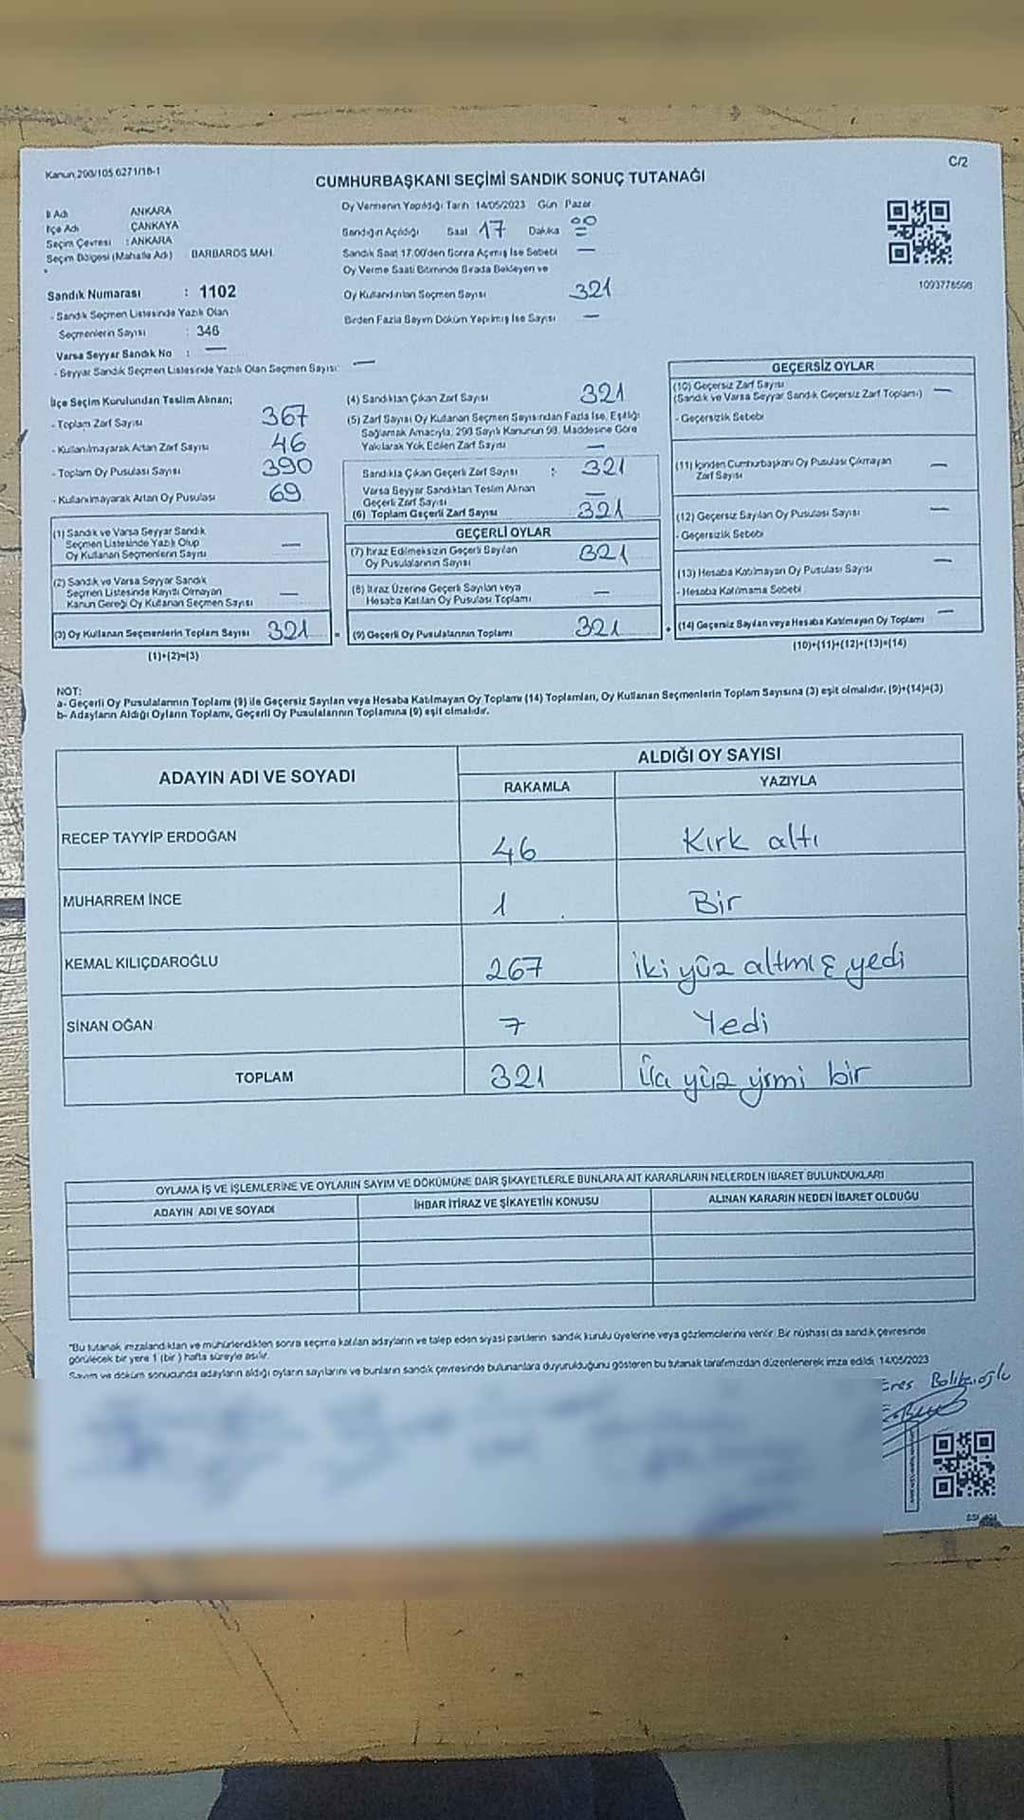 Kanun 298/105 6271/18-1
C/2
CUMHURBAŞKANI SEÇİMİ SANDIK SONUÇ TUTANAĞI
İl Adı ANKARA
İlçe Adı ÇANKAYA
Seçim Çevresi : ANKARA
Seçim Bölgesi (Mahalle Adı) BARBAROS MAH.
Sandık Numarası : 1102
- Sandık Seçmen Listesinde Yazılı Olan
Seçmenlerin Sayısı : 346
Varsa Seyyar Sandık No : —
- Seyyar Sandık Seçmen Listesinde Yazılı Olan Seçmen Sayısı: —
Oy Vermenin Yapıldığı Tarih 14/05/2023 Gün Pazar
Sandığın Açıldığı Saat 17 Dakika 00
Sandık Saat 17.00'den Sonra Açılmış İse Sebebi —
Oy Verme Saati Bitiminde Sırada Bekleyen ve
Oy Kullandırılan Seçmen Sayısı 321
Birden Fazla Sayım Döküm Yapılmış İse Sayısı —
1093778508
İlçe Seçim Kurulundan Teslim Alınan;
- Toplam Zarf Sayısı 367
- Kullanılmayarak Artan Zarf Sayısı 46
- Toplam Oy Pusulası Sayısı 390
- Kullanılmayarak Artan Oy Pusulası 69
(1) Sandık ve Varsa Seyyar Sandık
Seçmen Listesinde Yazılı Olup
Oy Kullanan Seçmenlerin Sayısı —
(2) Sandık ve Varsa Seyyar Sandık
Seçmen Listesinde Kayıtlı Olmayan
Kanun Gereği Oy Kullanan Seçmen Sayısı —
(3) Oy Kullanan Seçmenlerin Toplam Sayısı 321 =
(1)+(2)=(3)
(4) Sandıktan Çıkan Zarf Sayısı 321
(5) Zarf Sayısı Oy Kullanan Seçmen Sayısından Fazla İse, Eşitliği
Sağlamak Amacıyla, 298 Sayılı Kanunun 98. Maddesine Göre
Yakılarak Yok Edilen Zarf Sayısı —
Sandıkta Çıkan Geçerli Zarf Sayısı : 321
Varsa Seyyar Sandıktan Teslim Alınan
Geçerli Zarf Sayısı —
(6) Toplam Geçerli Zarf Sayısı 321
GEÇERLİ OYLAR
(7) İtiraz Edilmeksizin Geçerli Sayılan
Oy Pusulalarının Sayısı 321
(8) İtiraz Üzerine Geçerli Sayılan veya
Hesaba Katılan Oy Pusulası Toplamı —
(9) Geçerli Oy Pusulalarının Toplamı 321 +
GEÇERSİZ OYLAR
(10) Geçersiz Zarf Sayısı
(Sandık ve Varsa Seyyar Sandık Geçersiz Zarf Toplamı) —
- Geçersizlik Sebebi
(11) İçinden Cumhurbaşkanı Oy Pusulası Çıkmayan
Zarf Sayısı —
(12) Geçersiz Sayılan Oy Pusulası Sayısı —
- Geçersizlik Sebebi
(13) Hesaba Katılmayan Oy Pusulası Sayısı —
- Hesaba Katılmama Sebebi
(14) Geçersiz Sayılan veya Hesaba Katılmayan Oy Toplamı —
(10)+(11)+(12)+(13)=(14)
NOT:
a- Geçerli Oy Pusulalarının Toplamı (9) ile Geçersiz Sayılan veya Hesaba Katılmayan Oy Toplamı (14) Toplamları, Oy Kullanan Seçmenlerin Toplam Sayısına (3) eşit olmalıdır. (9)+(14)=(3)
b- Adayların Aldığı Oyların Toplamı, Geçerli Oy Pusulalarının Toplamına (9) eşit olmalıdır.
ADAYIN ADI VE SOYADI
ALDIĞI OY SAYISI
RAKAMLA YAZIYLA
RECEP TAYYİP ERDOĞAN 46 Kırk altı
MUHARREM İNCE 1 Bir
KEMAL KILIÇDAROĞLU 267 iki yüz altmış yedi
SİNAN OĞAN 7 Yedi
TOPLAM 321 Üç yüz yirmi bir
OYLAMA İŞ VE İŞLEMLERİNE VE OYLARIN SAYIM VE DÖKÜMÜNE DAİR ŞİKAYETLERLE BUNLARA AİT KARARLARIN NELERDEN İBARET BULUNDUKLARI
ADAYIN ADI VE SOYADI İHBAR İTİRAZ VE ŞİKAYETİN KONUSU ALINAN KARARIN NEDEN İBARET OLDUĞU
"Bu tutanak imzalandıktan ve mühürlendikten sonra seçime katılan adayların ve talep eden siyasi partilerin sandık kurulu üyelerine veya gözlemcilerine verilir. Bir nüshası da sandık çevresinde
görülecek bir yere 1 (bir) hafta süreyle asılır.
Sayım ve döküm sonucunda adayların aldığı oyların sayılarını ve bunların sandık çevresinde bulunanlara duyurulduğunu gösteren bu tutanak tarafımızdan düzenlenerek imza edildi. 14/05/2023